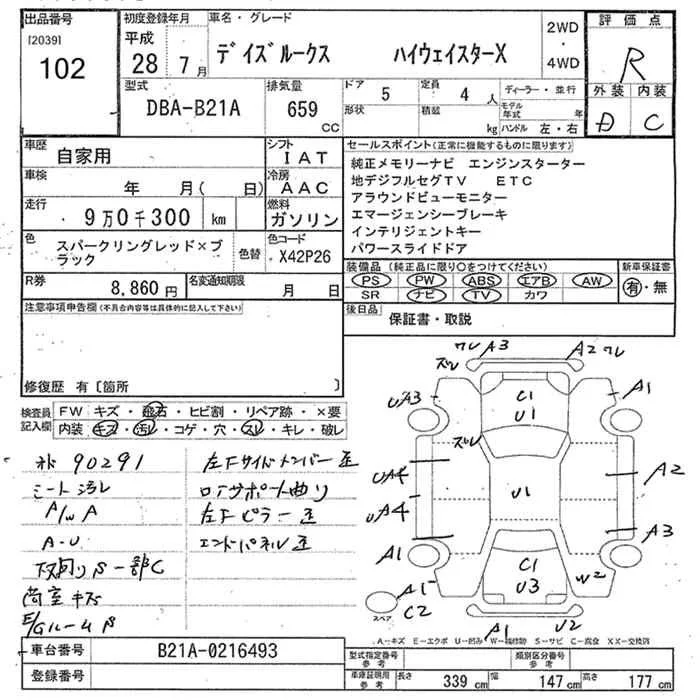 出品番号
[2039]
102
初度登録年月
平成
28 7月
車名・グレード
デイズルークス ハイウェイスターX
2WD
・
4WD
評価点
R
外装 内装
D C
型式
DBA-B21A
排気量
659
CC
ドア
5
定員
4 人
形状
積装
kg
ディーラー・並行
モデル年式 年
ハンドル 左・右
車歴
自家用
シフト
IAT
車検
年 月( 日)
冷房
AAC
走行
9万0千300 km
燃料
ガソリン
色
スパークリングレッド×ブラック
色替
色コード
X42P26
R券
8,860円
名変通知期限
月 日
セールスポイント(正常に機能するものに限ります)
純正メモリーナビ エンジンスターター
地デジフルセグTV ETC
アラウンドビューモニター
エマージェンシーブレーキ
インテリジェントキー
パワースライドドア
装備品(純正品に限り〇をつけてください)
PS PW ABS エアB AW
SR ナビ TV カワ
新車保証書
有・無
後日品
保証書・取説
注意事項申告欄(不具合内容等は具体的に記入して下さい)
修復歴 有〔箇所 〕
検査員記入欄
FW キズ・飛石・ヒビ割・リペア跡・×要
内装 キズ・汚レ・コゲ・穴・スレ・キレ・破レ
90291
シート汚レ
A/W A
A-U
下回りS一部C
荷室キズ
E/GルームS
左Fサイドメンバー歪
ロアサポート曲り
左Fピラー歪
エンドパネル歪
ワレ A3
A2 ワレ
スレ
UA3
A1
C1
U1
スレ
UA4
U1
A2
UA4
A3
A1
C1
U3
W2
A1
C2
スペア
A1
U2
A-キズ E-エクボ U-凹み W-補修跡 S-サビ C-腐食 XX-交換済
車台番号
B21A-0216493
登録番号
型式指定番号
参考
類別区分番号
参考
車庫証明用
参考
長さ 339 cm
幅 147 cm
高さ 177 cm